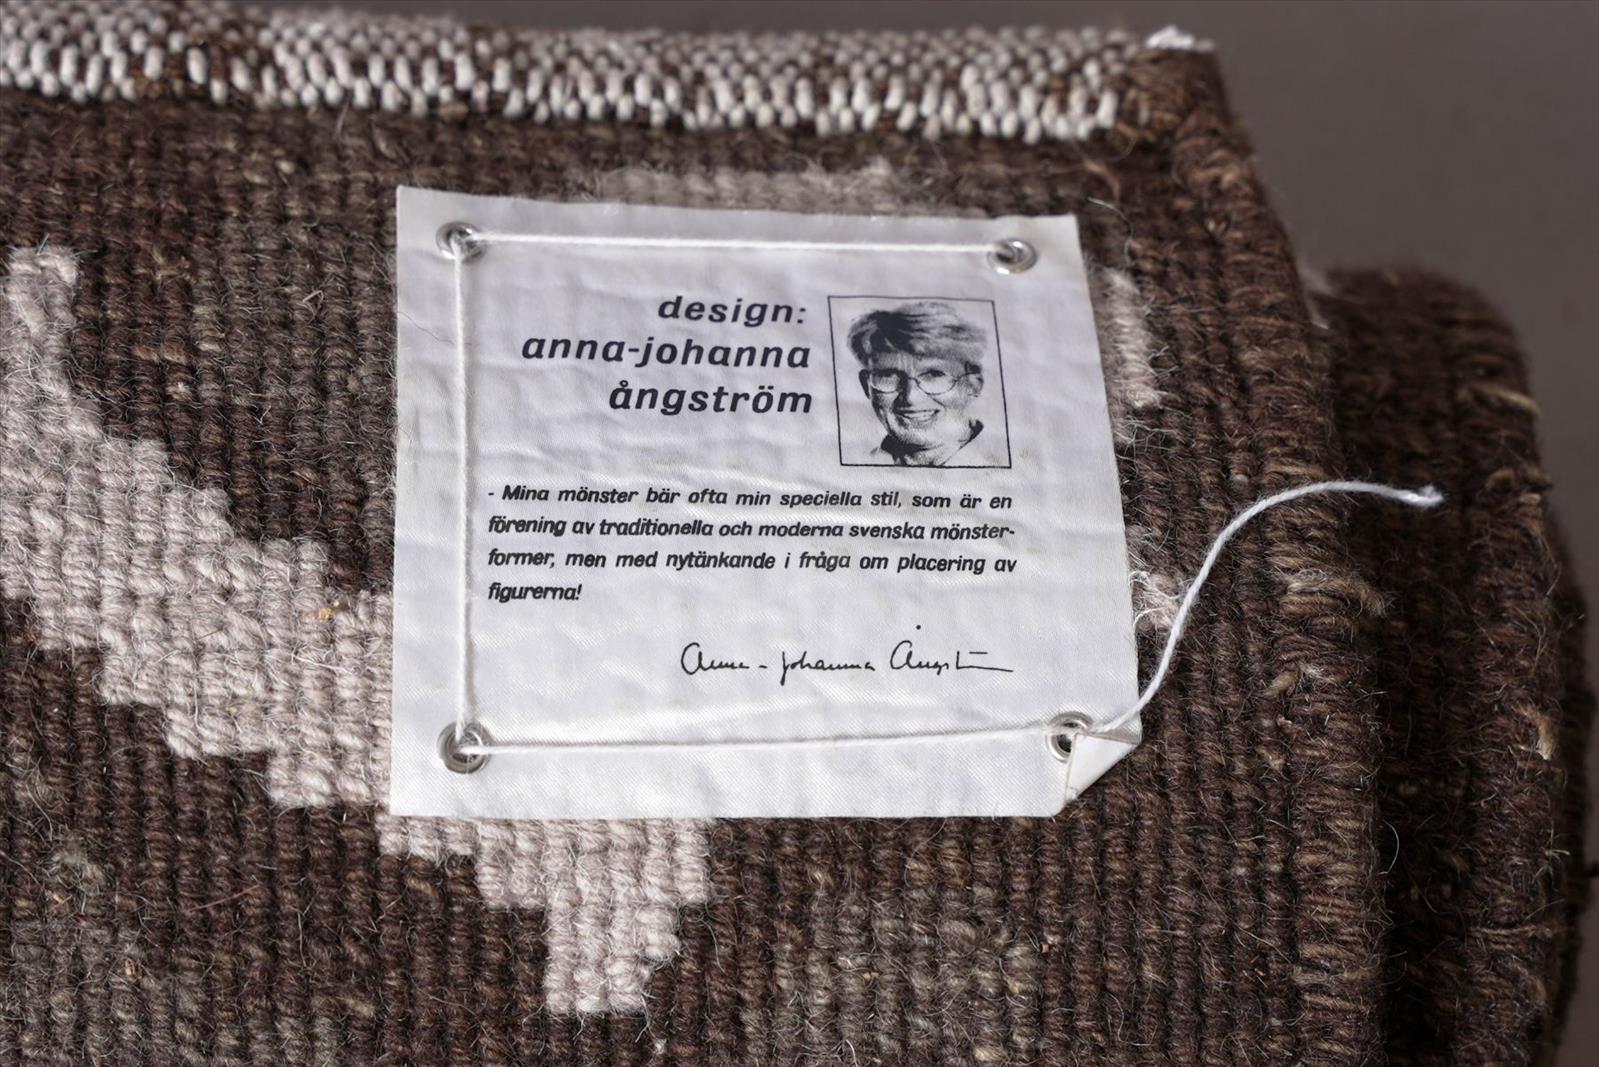 design:
anna-johanna
ångström
- Mina mönster bär ofta min speciella stil, som är en
förening av traditionella och moderna svenska mönster-
former, men med nytänkande i fråga om placering av
figurerna!
Anna-Johanna Ångström